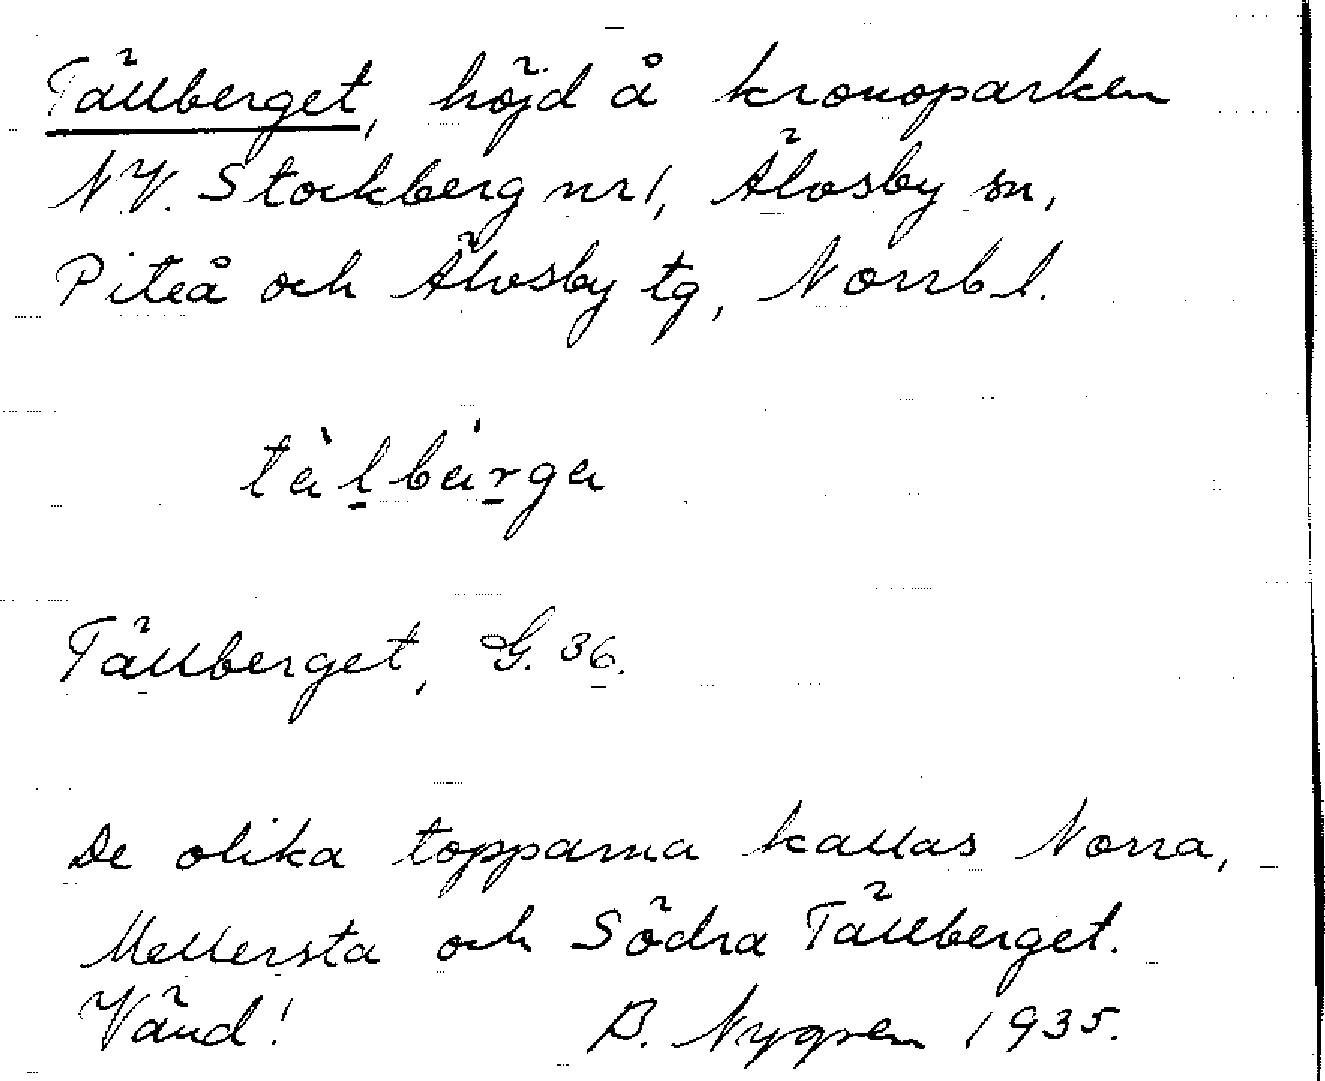 Tällberget, höjd å kronoparken
NV. Stockberg nr 1, Älvsby sn,
Piteå och Älvsby tg, Norrb l.
tä̀lbä́rga
Tällberget, G. 36.
De olika topparna kallas Norra,
Mellersta och Södra Tällberget.
Vänd! B. Nygren 1935.